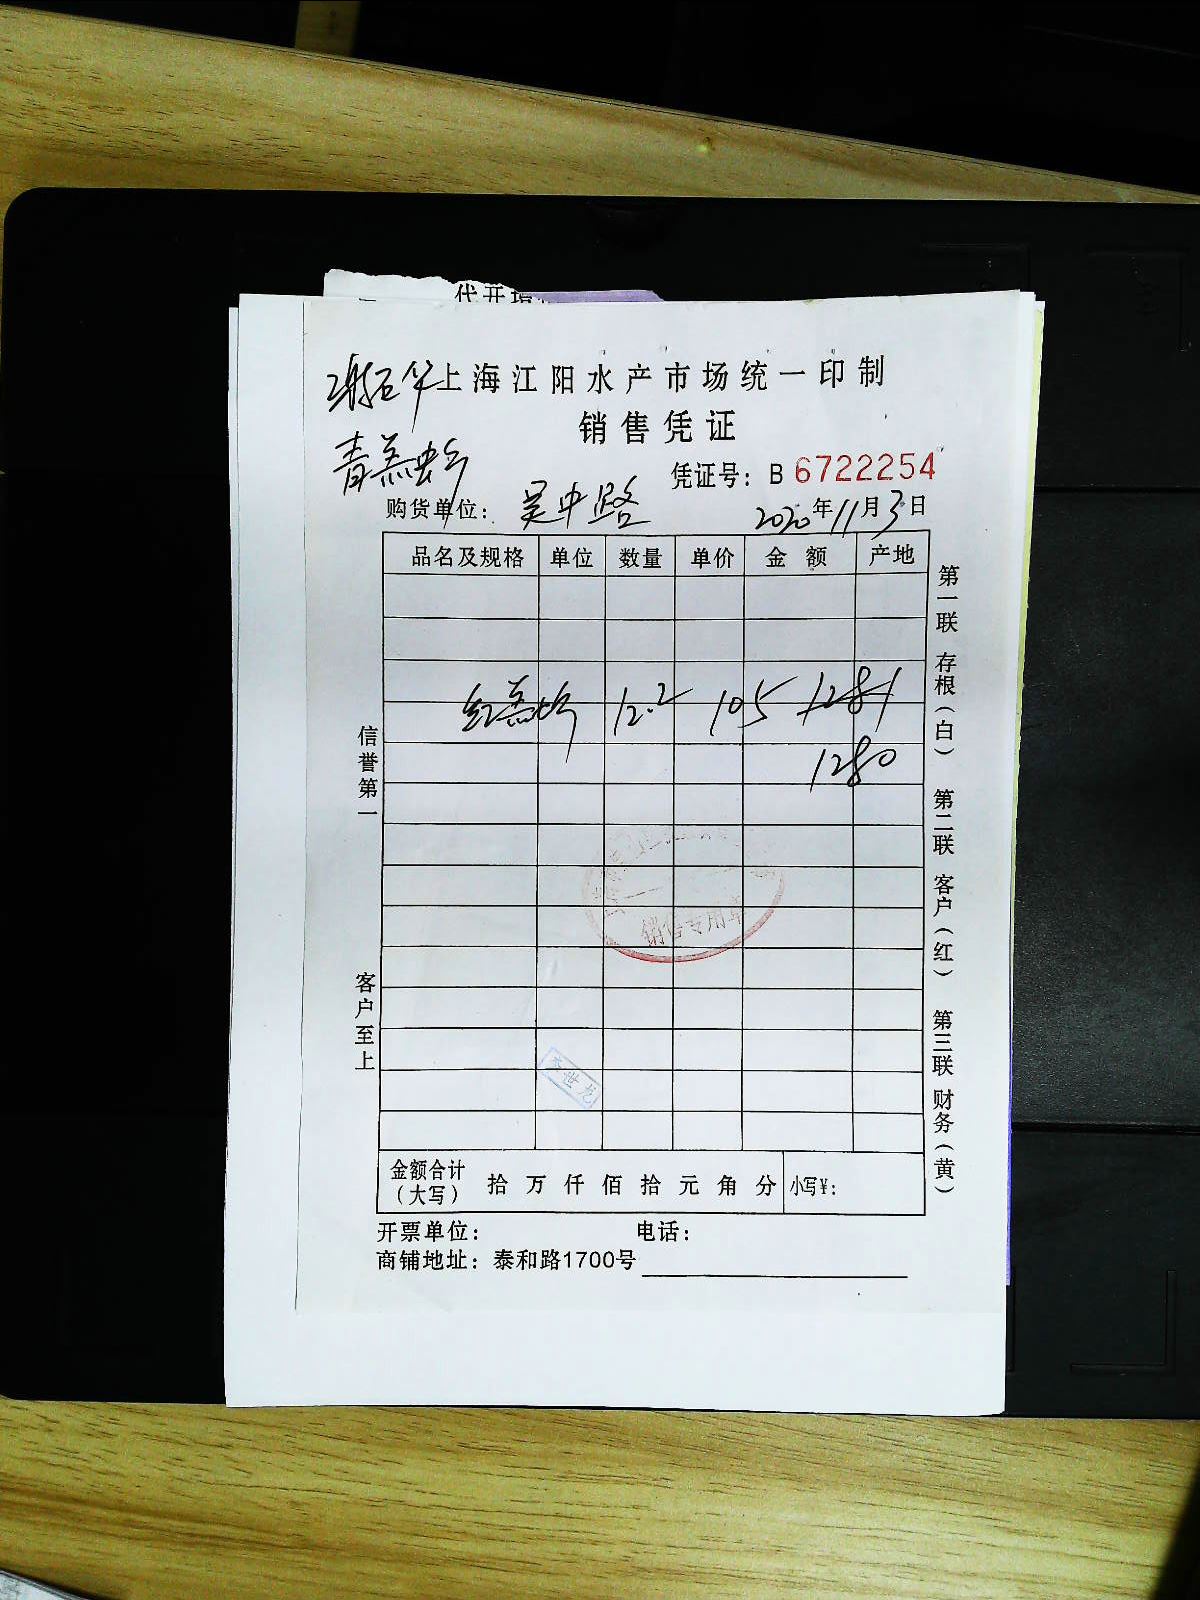 代开增
上海江阳水产市场统一印制
销售凭证
青羔虾
凭证号：B 6722254
购货单位：吴中路
2020年11月3日
品名及规格 单位 数量 单价 金额 产地
红羔虾 12.2 105 1281
1280
销售专用章
李世龙
金额合计（大写） 拾 万 仟 佰 拾 元 角 分 小写¥：
开票单位： 电话：
商铺地址：泰和路1700号
信誉第一
客户至上
第一联 存根（白） 第二联 客户（红） 第三联 财务（黄）